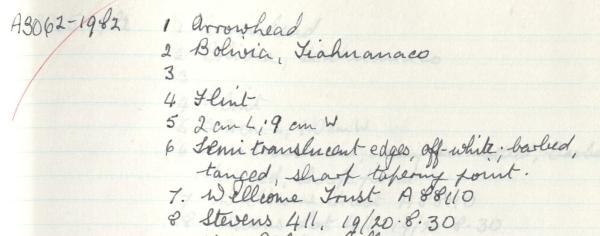 A3062-1982 1 Arrowhead
2 Bolivia, Tiahuanaco
3
4 Flint
5 2 cm L; 9 cm W
6 Semi translucent edges, off-white; barbed,
tanged, sharp tapering point.
7. Wellcome Trust A 88110
8 Stevens 411. 19/20.8.30